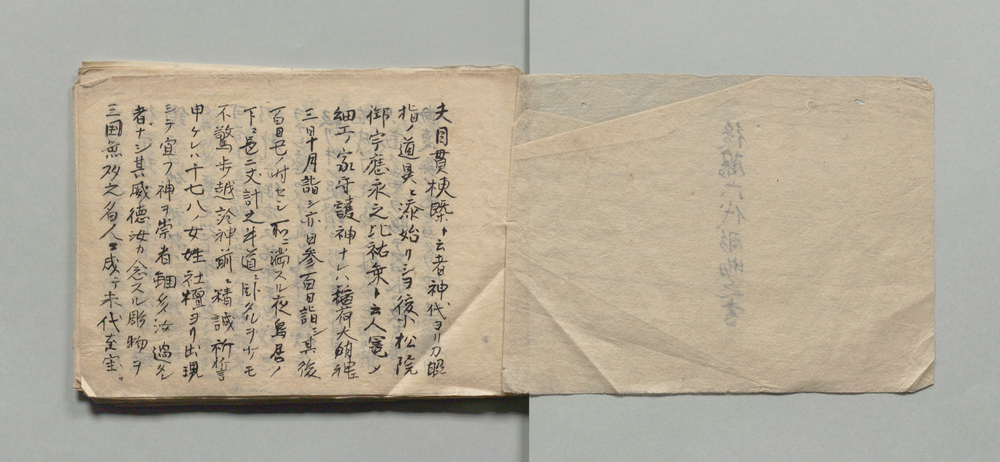 後藤六代彫物之書
夫目貫 ト云者神代ヨリ刀腰
指ノ道具ニ添始リシヲ後小松院
御宇應永之比祐乗ト云人
細工ノ家守護神ナレハ稲荷大明神
三年十月詣シ亦日参百日詣シ其後
百日 ノ 所ニ満スル夜鳥居ノ
下ニ 二丈計之 道ニ臥タルヲサモ
不驚歩越於神前ニ精誠祈誓
申ケレハ十七八ノ女姓社壇ヨリ出現
シテ宣フ神ヲ崇者雖多汝過タル
者ナシ其威徳汝カ念スル彫物ヲ
三国無双之名人ニ成テ末代至宝ニ